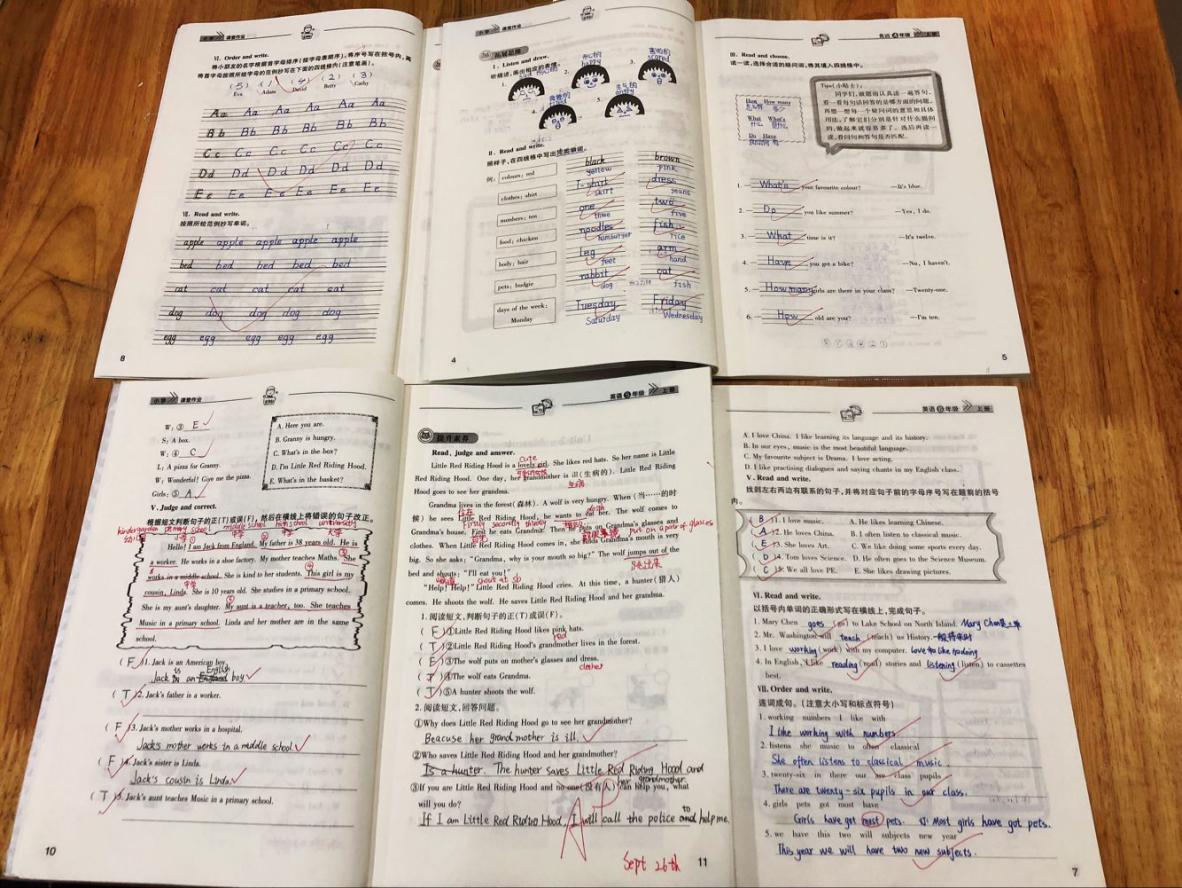 小学 课堂作业
VI. Order and write.
(5) (1) (4) (2) (3)
Eva Adam David Betty Cathy
Aa Aa Aa Aa Aa Aa
Bb Bb Bb Bb Bb Bb
Cc Cc Cc Cc Cc Cc
Dd Dd Dd Dd Dd Dd
Ee Ee Ee Ee Ee Ee
VII. Read and write.
按照所给范例抄写单词。
apple apple apple apple apple
bed bed bed bed bed
cat cat cat cat cat
dog dog dog dog dog
egg egg egg egg egg
8
小学 课堂作业
拓展思维
I. Listen and draw.
1. 2. 3.
4. 5.
II. Read and write.
例: colours: red black brown
yellow pink
clothes: shirt T-shirt dress
skirt jeans
numbers: ten one two
three five
food: chicken noodles fish
hamburger rice
body: hair leg arm
feet hand
pets: budgie rabbit cat
dog fish
days of the week: Monday Tuesday Friday
Saturday Wednesday
4
英语 年级 上册
III. Read and choose.
读一读,选择合适的疑问词,将其填入四线格中。
How How many
怎么样 多少
What What's
什么 是什么
Do Have
Tips(小贴士):
同学们,做题前认真读一遍答句,
看一看每句话回答的是哪方面的问题,
再想一想每一个疑问词的意思和具体
用法,了解它们分别是针对什么提问
的,做起来就容易多了。选后再读一
读,看问句和答句是否匹配。
1. — What's your favourite colour? —It's blue.
2. — Do you like summer? —Yes, I do.
3. — What time is it? —It's twelve.
4. — Have you got a bike? —No, I haven't.
5. — How many girls are there in your class? —Twenty-one.
6. — How old are you? —I'm ten.
5
小学 课堂作业
W: ③ E
S: A box.
W: ④ C
L: A pizza for Granny.
W: Wonderful! Give me the pizza.
Girls: ⑤ A
A. Here you are.
B. Granny is hungry.
C. What's in the box?
D. I'm Little Red Riding Hood.
E. What's in the basket?
V. Judge and correct.
根据短文判断句子的正(T)或误(F),然后在横线上将错误的句子改正。
kindergarten primary school middle school high school university
Hello! I am Jack from England. My father is 38 years old. He is
a worker. He works in a shoe factory. My mother teaches Maths. She
works in a middle school. She is kind to her students. This girl is my
cousin, Linda. She is 10 years old. She studies in a primary school.
She is my aunt's daughter. My aunt is a teacher, too. She teaches
Music in a primary school. Linda and her mother are in the same
school.
( F )1. Jack is an American boy.
Jack is an English boy
( T )2. Jack's father is a worker.
( F )3. Jack's mother works in a hospital.
Jack's mother works in a middle school.
( F )4. Jack's sister is Linda.
Jack's cousin is Linda.
( T )5. Jack's aunt teaches Music in a primary school.
10
英语 5 年级 上册
提升素养
Read, judge and answer.
cute
Little Red Riding Hood is a lovely girl. She likes red hats. So her name is Little
可爱的女孩
Red Riding Hood. One day, her grandmother is ill(生病的). Little Red Riding
生病
Hood goes to see her grandma.
Grandma lives in the forest(森林). A wolf is very hungry. When (当……的时
候) he sees Little Red Riding Hood, he wants to eat her. The wolf comes to
Firstly secondly thirdly
Grandma's house. First he eats Grandma! Then he puts on Grandma's glasses and
put on a pair of glasses
clothes. When Little Red Riding Hood comes in, she finds Grandma's mouth is very
big. So she asks: "Grandma, why is your mouth so big?" The wolf jumps out of the
跳出来
bed and shouts: "I'll eat you!"
shout at sb
"Help! Help!" Little Red Riding Hood cries. At this time, a hunter(猎人)
comes. He shoots the wolf. He saves Little Red Riding Hood and her grandma.
1. 阅读短文,判断句子的正(T)或误(F)。
( F )①Little Red Riding Hood likes pink hats.
red
( T )②Little Red Riding Hood's grandmother lives in the forest.
( F )③The wolf puts on mother's glasses and dress.
clothes
( T )④The wolf eats Grandma.
( T )⑤A hunter shoots the wolf.
2. 阅读短文,回答问题。
①Why does Little Red Riding Hood go to see her grandmother?
Beacuse her grand mother is ill.
②Who saves Little Red Riding Hood and her grandmother?
Is a hunter. The hunter saves Little Red Riding Hood and
her grandmother.
③If you are Little Red Riding Hood and no one(没有人) can help you, what
will you do?
to
If I am Little Red Riding Hood, I will call the police and help me.
A
Sept 26th
11
英语 年级 上册
A. I love China. I like learning its language and its history.
B. In our eyes, music is the most beautiful language.
C. My favourite subject is Drama. I love acting.
D. I like practising dialogues and saying chants in my English class.
V. Read and write.
找到左右两边有联系的句子,并将对应句子前的字母序号写在题前的括号
内。
( B )1. I love music. A. He likes learning Chinese.
( A )2. He loves China. B. I often listen to classical music.
( E )3. She loves Art. C. We like doing some sports every day.
( D )4. Tom loves Science. D. He often goes to the Science Museum.
( C )5. We all love PE. E. She likes drawing pictures.
VI. Read and write.
以括号内单词的正确形式写在横线上,完成句子。
1. Mary Chen goes (go) to Lake School on North Island. Mary Chen
2. Mr. Washington will teach (teach) us History. 一般将来时
3. I love working (work) with my computer. love to like
4. In English, I like reading (read) stories and listening (listen) to cassettes
best.
VII. Order and write.
连词成句。(注意大小写和标点符号)
1. working numbers I like with
I like working with numbers.
2. listens she music to often classical
She often listens to classical music.
3. twenty-six in there our are class pupils
There are twenty-six pupils in our class.
4. girls pets got most have
Girls have got most pets. Most girls have got pets.
5. we have this two will subjects new year
This year we will have two new subjects.
7